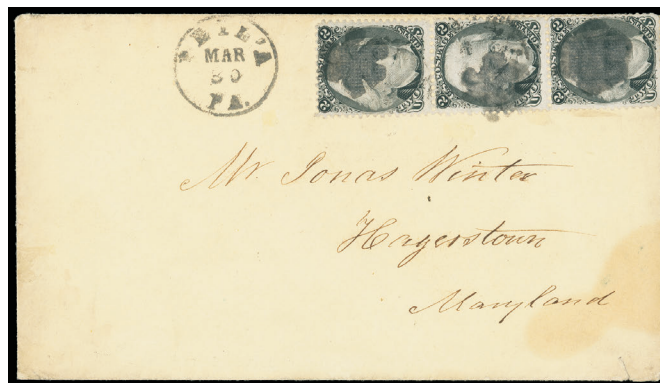 PHIL'A
MAR
30
PA.
Mr. Jonas Winter
Hagerstown
Maryland